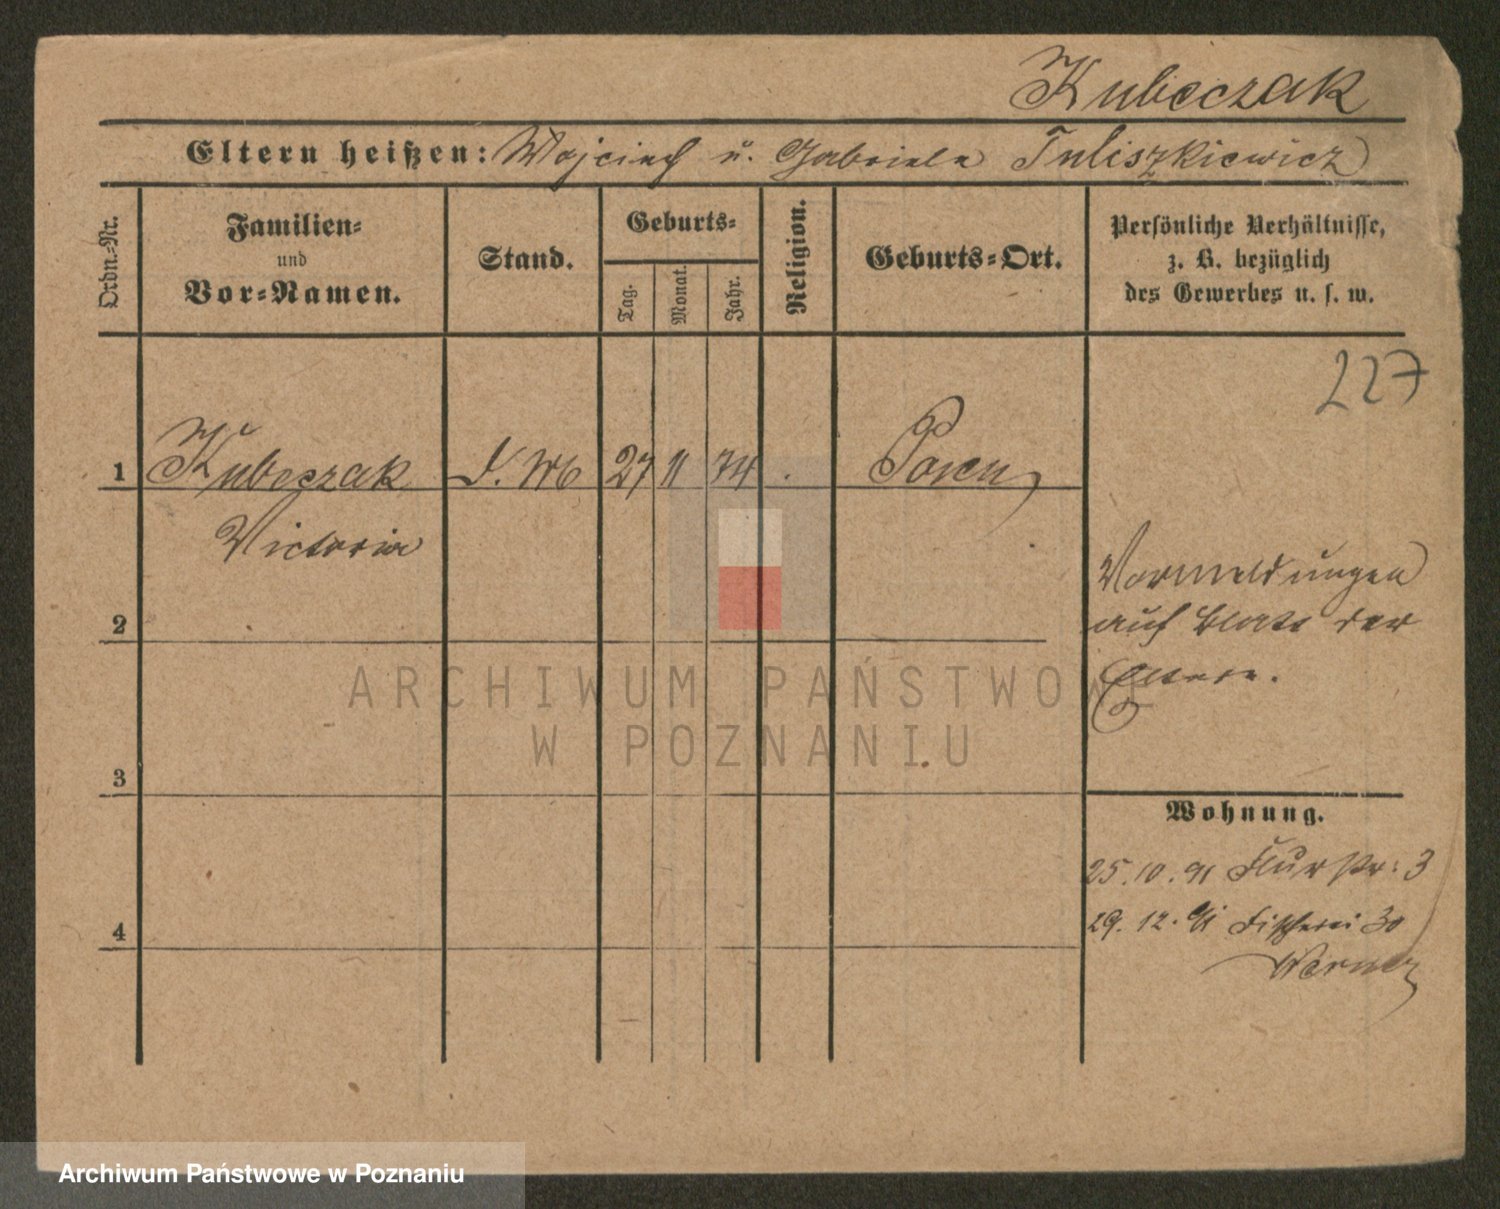 Kubeczak
Eltern heißen: Wojciech u. Gabriela Tuliszkiewicz
Ordn.-Nr.
Familien-
und
Vor-Namen.
Stand.
Geburts-
Tag.
Monat.
Jahr.
Religion.
Geburts-Ort.
Persönliche Verhältnisse,
z. B. bezüglich
des Gewerbes u. s. w.
227
1 Kubeczak 27 11 74 Posen
Victoria
Vormeldungen
auf Blatt der
Eltern.
2
3
4
Wohnung.
25.10.91 Flurstr: 3
29.12.91 Fischerei 30
ARCHIWUM PAŃSTWOWE
W POZNANIU
Archiwum Państwowe w Poznaniu